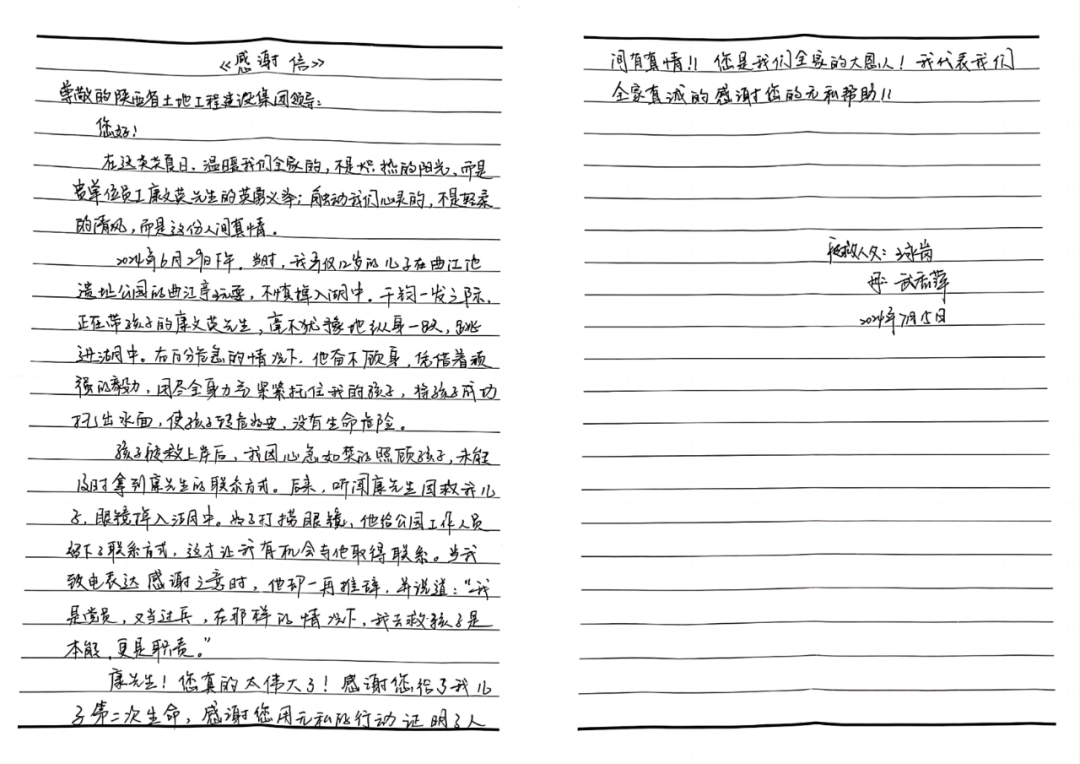 《感谢信》
尊敬的陕西省土地工程建设集团领导：
您好！
在这炎炎夏日，温暖我们全家的，不是炽热的阳光，而是
贵单位员工康文英先生的英勇义举；触动我们心灵的，不是轻柔
的清风，而是这份人间真情。
2024年6月29日下午，当时，我弟仅12岁的儿子在曲江池
遗址公园的曲江亭玩耍，不慎掉入湖中。千钧一发之际，
正在带孩子的康文英先生，毫不犹豫地纵身一跃，跳
进湖中。在万分危急的情况下，他奋不顾身，凭借着顽
强的毅力，用尽全身力气紧紧托住我的孩子，将孩子成功
托出水面，使孩子转危为安，没有生命危险。
孩子被救上岸后，我因心急如焚的照顾孩子，未能
及时拿到康先生的联系方式。后来，听闻康先生因救我儿
子，眼镜掉入湖中。为了打捞眼镜，他给公园工作人员
留下了联系方式，这才让我有机会与他取得联系。当我
致电表达感谢之意时，他却一再推辞，并说道："我
是党员，又当过兵，在那样的情况下，我去救孩子是
本能，更是职责。"
康先生！您真的太伟大了！感谢您给了我儿
子第二次生命，感谢您用无私的行动证明了人
间有真情!! 您是我们全家的大恩人！我代表我们
全家真诚的感谢您的无私帮助!!
被救人父：
母：武
2024年7月15日